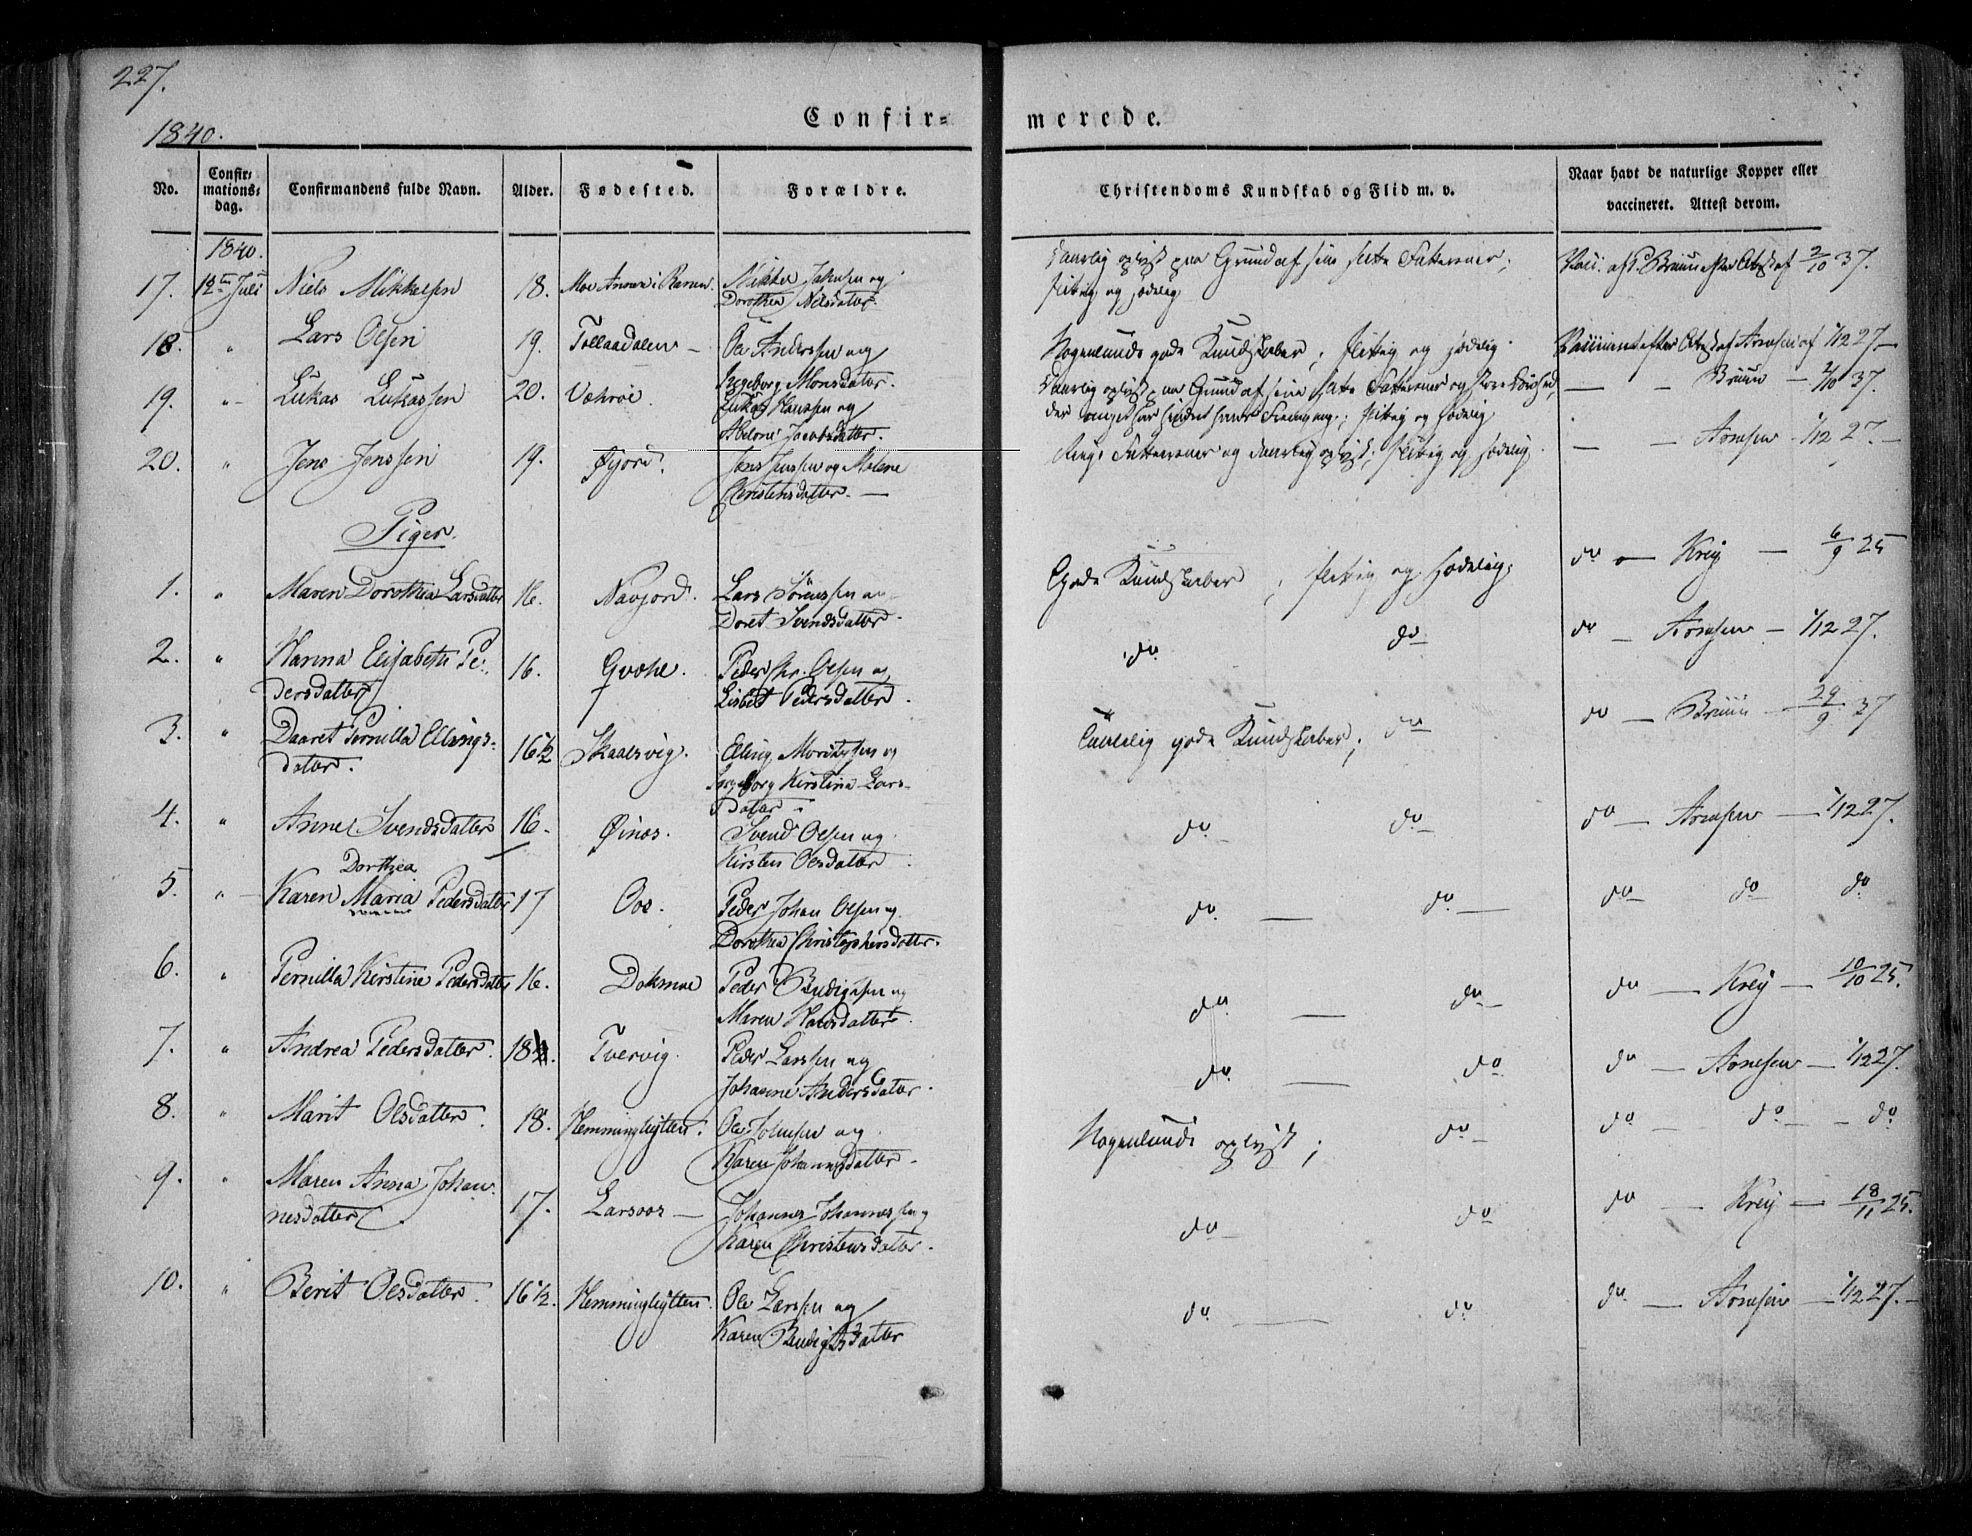 227.
1840.
Confir= merede.
No. Confir= mations= dag. Confirmandens fulde Navn. Alder. Fødested. Forældre. Christendoms Kundskab og Flid m. v. Naar havt de naturlige Kopper eller vaccineret. Attest derom.
1840.
17. 12te Juli Niels Mikkelsen 18. Moe Annex i Ranen. Mikkel Johnsen og Dorothea Nilsdatter daarlig oplyst paa Grund af sine Fatteevner; flittig og sædelig 2/10 37.
18. " Lars Olsen 19. Tollaadalen — Ole Anderssen og Ingeborg Monsdatter. Nogenlunde gode Kundskaber, flittig og sædelig. Vaccineret efter Attest af Arnesen af 1/12 27. —
19. " Lukas Lukassen 20. Væhroe. Lukas Hanssen og Abelone Jacobsdatter. daarlig oplyst paa Grund af sine Fatteevner og flittig og sædelig — — Bruun — 2/10 37.
20. " Jens Jenssen 19. Øjord. Jens Jenssen og Malene Christensdatter. — Ringe Fatteevner og daarlig oplyst; flittig og sædelig. — — Arnesen 1/12 27. —
Piger.
1. " Maren Dorothea Larsdatter 16. Navjord. Lars Sørenssen og Doret Svendsdatter. Gode Kundskaber, flittig og sædelig. do — Krey — 6/9 25
2. " Hanna Elisabeth Pe= dersdatter 16. Gvohe. Peder Chr. Olsen og Lisbet Pedersdatter. do do do — Arnesen — 1/12 27.
3. " Daaret Pernilla Ellings= datter. 16 1/2 Skaalsvig. Elling Moritssen og Ingeborg Kirstina Lars= datter. Taalelig gode Kundskaber; do do — Bruun — 29/9 37
4. " Anne Svendsdatter 16. Øinæs. Svend Olsen og Kirsten Olsdatter do. do. — do — Arnesen — 1/12 27.
Dorthea
5. " Karen Maria Pedersdatter 17 Oos. Peder Johan Olsen og Dorothea Christophersdatter. do. — do. — do — do do
6. " Pernilla Kirstine Pedersdatter 16. Dokmoe Peder Bendigtsen og Maren Hansdatter. do. — do — do — Krey — 10/10 25.
7. " Andrea Pedersdatter. 18 Tvervig. Peder Larssen og Johanne Andersdatter. do. — do. do — Arnesen — 1/12 27.
8. " Marit Olsdatter. 18. Hemminghytten. Ole Johnsen og Karen Johannsdatter. Nogenlunde oplyst; do — do — do — do.
9. " Maren Anna Johan= nesdatter. 17. Larsoos — Johannes Johannessen og Karen Christensdatter. do — do do — Krey — 18/11 25.
10. " Berit Olsdatter. 16 1/2. Hemminghytten. Ole Larssen og Karen Bendigtsdatter do. — do do — Arnesen — 1/12 27. —